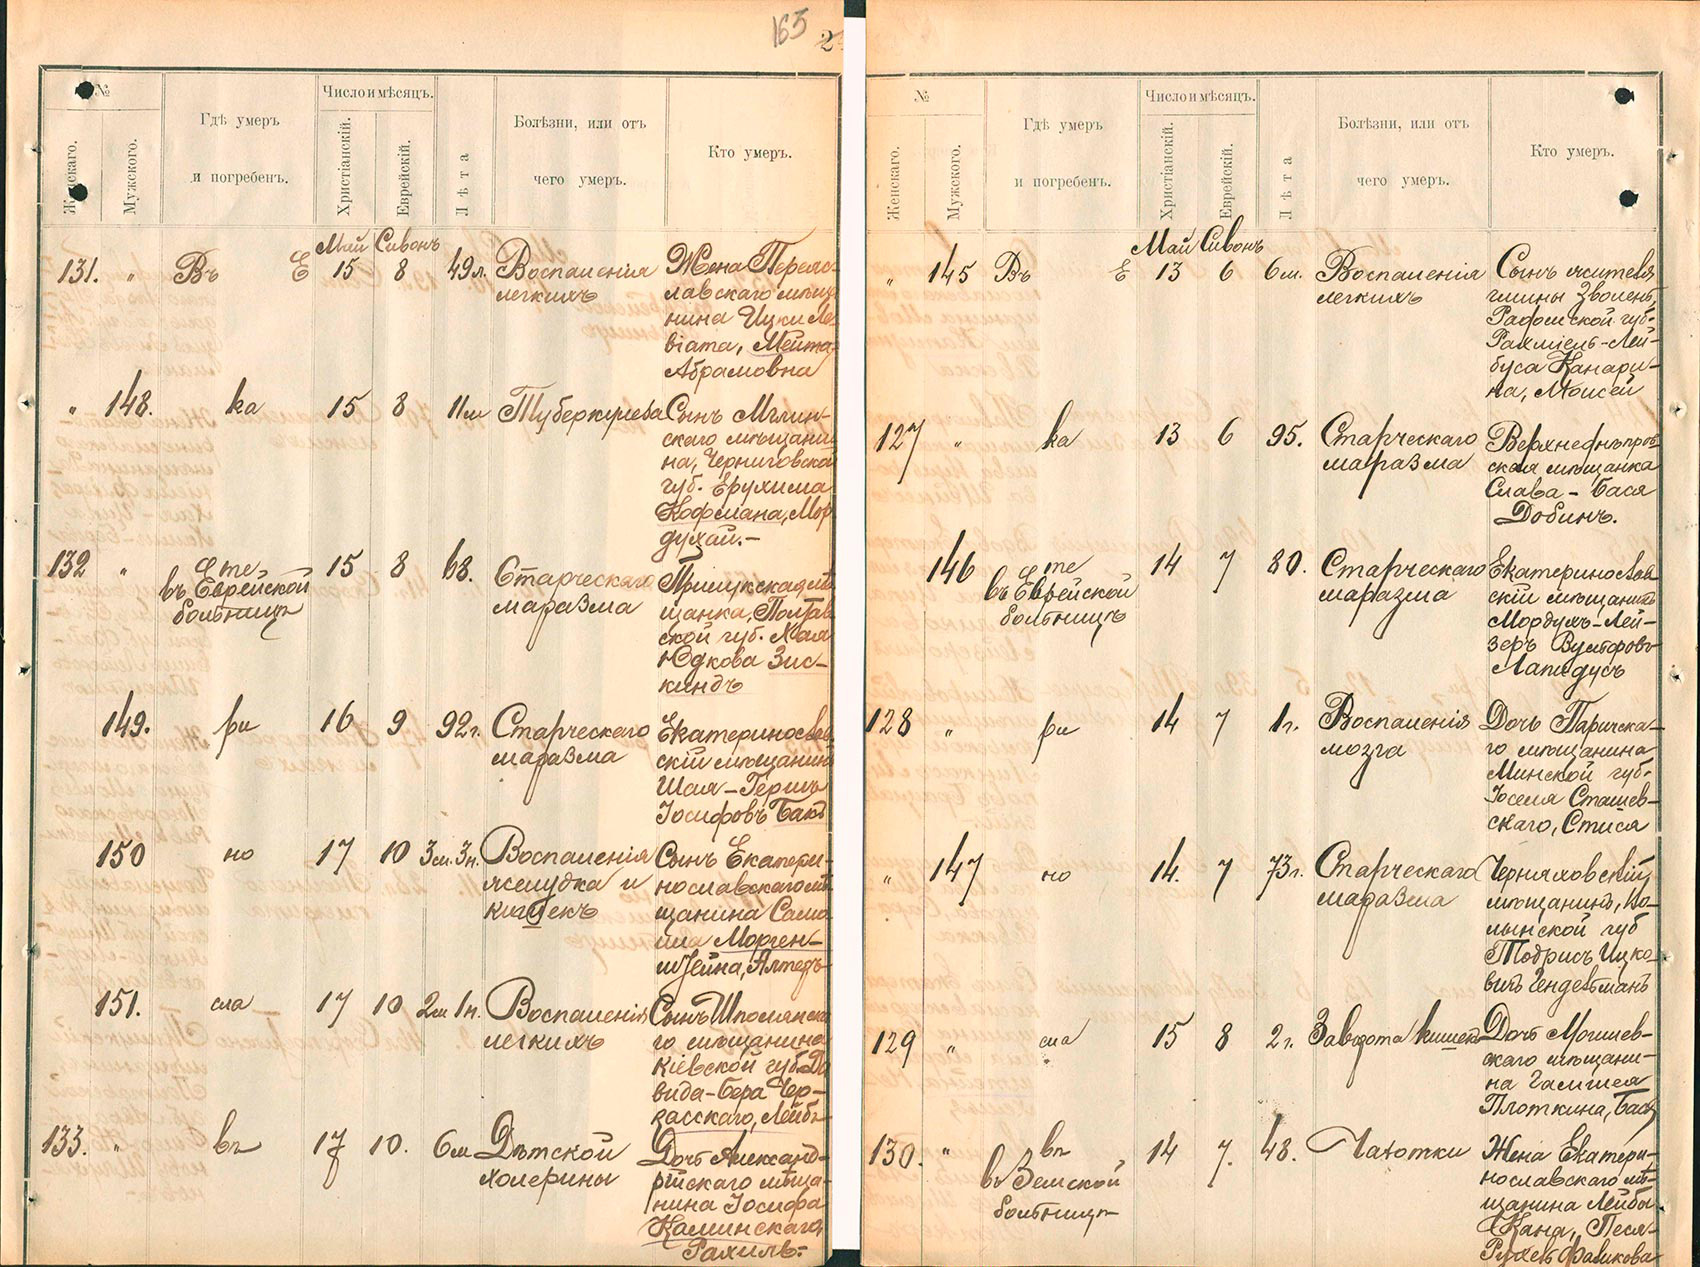 163
2
№
Женскаго.
Мужского.
Гдѣ умеръ
и погребенъ.
Число и мѣсяцъ.
Христіанскій.
Еврейскій.
Лѣта
Болѣзни, или отъ
чего умеръ.
Кто умеръ.
Май Сивонъ
131. " Въ Е 15 8 49 л. Воспаленія
легкихъ
Жена Переяс-
лавскаго мѣща-
нина Ицки Ле-
віата, Мейта-
Абрамовна
" 148. ка 15 8 11 м Туберкулеза
Сынъ Мглин-
скаго мѣщани-
на, Черниговской
губ. Ерухима
Кофмана, Мор-
духай.-
132 " Сте
въ Еврейской
больницѣ
15 8 68. Старческаго
маразма
Прилукская мѣ-
щанка, Полтав-
ской губ. Хая
Юдкова Зис-
киндъ
149. ри 16 9 92 г. Старческаго
маразма
Екатеринослав-
скій мѣщанинъ
Шая-Гершъ
Іосифовъ Бакъ
150 но 17 10 3 м. 3 н. Воспаленія
желудка и
кишекъ
Сынъ Екатери-
нославскаго мѣ-
щанина Само-
йла Морген-
штейна, Алтеръ
151. сла 17 10 2 м 1 н. Воспаленія
легкихъ
Сынъ Шполянска-
го мѣщанина
Кіевской губ. Да-
вида-Бера Чер-
касскаго, Лейбъ
133. " вѣ 17 10. 6 м Дѣтской
холерины
Дочь Александ-
рійскаго мѣща-
нина Іосифа
Каминскаго,
Рахиль.-
№
Женскаго.
Мужского.
Гдѣ умеръ
и погребенъ.
Число и мѣсяцъ.
Христіанскій.
Еврейскій.
Лѣта
Болѣзни, или отъ
чего умеръ.
Кто умеръ.
Май Сивонъ
" 145 Въ Е 13 6 6 м. Воспаленія
легкихъ
Сынъ жителя
гмины Зволень,
Радомской губ.
Рахміель-Лей-
буса Канари-
ка, Моисей
127 " ка 13 6 95. Старческаго
маразма
Верхнеднѣпров-
ская мѣщанка
Слава-Бася
Добинъ.
146 Сте
въ Еврейской
больницѣ
14 7 80. Старческаго
маразма
Екатеринослав-
скій мѣщанинъ
Мордухъ-Лей-
зеръ Вульфовъ
Лапидусъ
128 " ри 14 7 1 г. Воспаленія
мозга
Дочь Паричска-
го мѣщанина
Минской губ.
Іоселя Сташев-
скаго, Стися
" 147 но 14. 7 73 г. Старческаго
маразма
Черняховскій
мѣщанинъ, Во-
лынской губ
Тодрисъ Ицко-
вичъ Гендельманъ
129 " сла 15 8 2 г. Заворота кишекъ
Дочь Могилев-
скаго мѣщани-
на Гамшея
Плоткина, Бася
130. " вѣ
въ Земской
больницѣ
14 7. 48. Чахотки
Жена Екатери-
нославскаго мѣ-
щанина Лейбы
Кана, Песя-
Рухель Фаликова